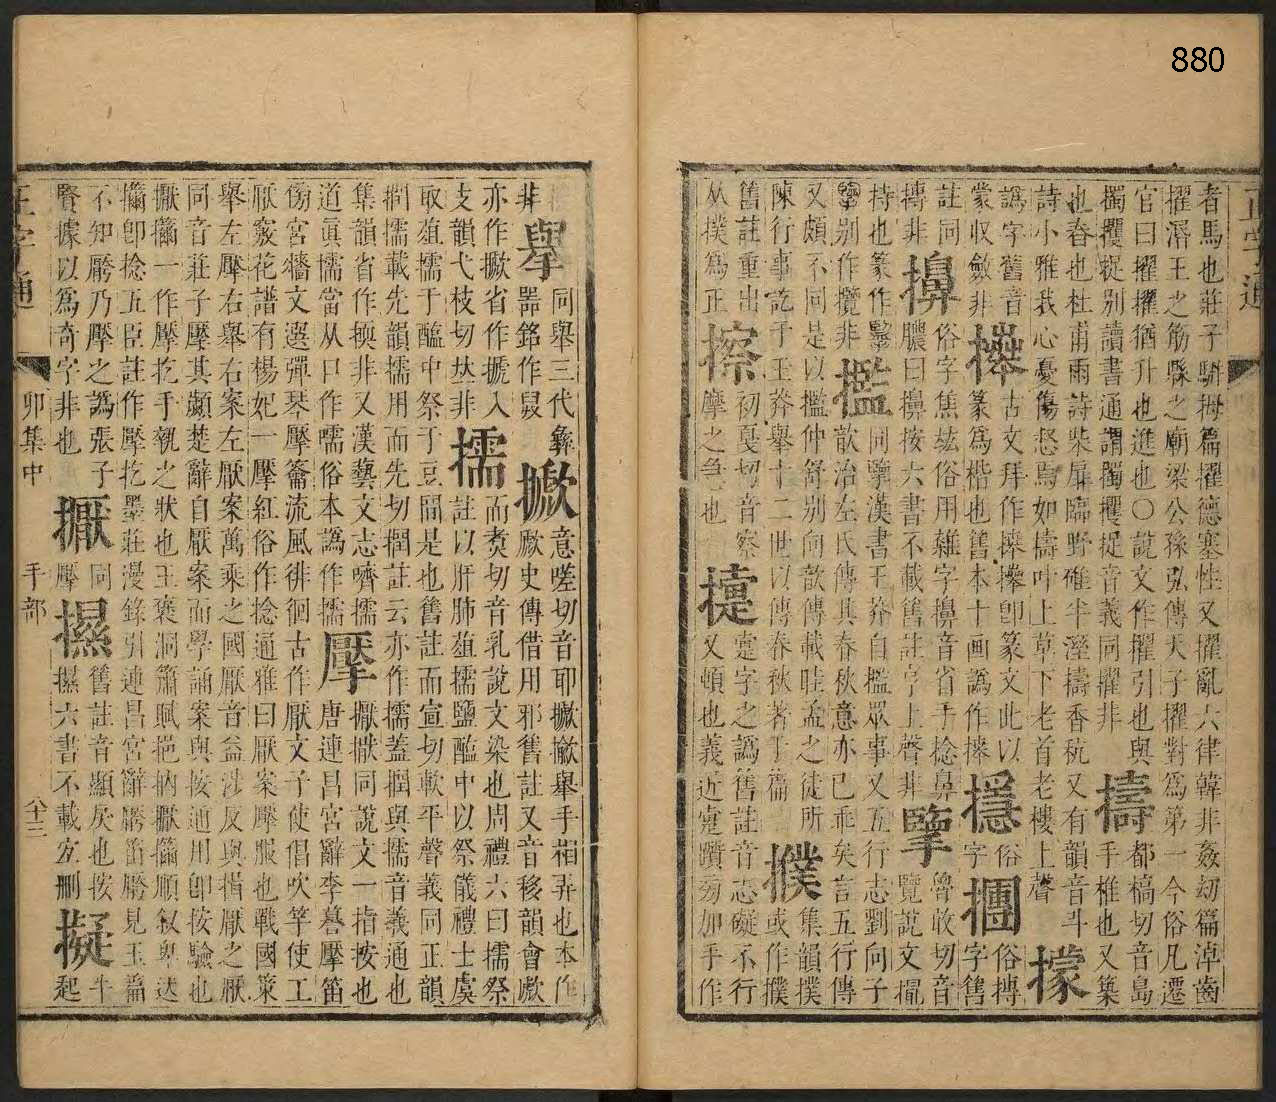 880
正字通
者馬也莊子駢拇篇擢德塞性又擢亂六律韓非姦劫篇淖齒
擢湣王之筋縣之廟梁公孫弘傳天子擢對為第一今俗凡遷
官曰擢擢猶升也進也○說文作擢引也與
擣都槁切音島
擉㩴捉别讀書通謂擉㩴捉音義同擢非
手椎也又築
也舂也杜甫雨詩柴扉臨野碓半溼擣香秔又有韻音斗
詩小雅我心憂傷惄焉如擣叶上草下老首老樓上聲
㩚
譌字舊音
𢸁古文拜作𢷎𢸁卽篆文此以
蒙收斂非
篆爲楷也舊本十画譌作𢸁
㩓俗
字
摶俗摶
字舊
註同
擤俗字焦竑俗用雜字擤音省手捻鼻
摶非
膿曰擤按六書不載舊註亨上聲非
擥魯收切音
覽說文撮
持也篆作擥同擥漢書王莽自㩜眾事又五行志劉向子
㩜
歆治左氏傳其春秋意亦已乖矣言五行傳
又頗不同是以㩜仲舒别向歆傳載眭孟之徒所
撲集韻撲
或作㩧
陳行事訖于王莽舉十二世以傳春秋著于篇
舊註重出
擦初戛切音察
摩之急也
㨖疐字之譌舊註音志礙不行
又頓也義近疐躓刕加手作
从撲爲正
擧同舉三代彝
非器銘作㒷
㩎意嗟切音耶㩎㩠舉手相弄也本作
歋史傳借用邪舊註又音移韻會歋
亦作㩎省作搋入
擩而煑切音乳說文染也周禮六曰擩祭
支韻弋枝切𠀤非
註以肝肺菹擩鹽醢中以祭儀禮士虞
取菹擩于醢中祭于豆間是也舊註而宣切軟平聲義同正韻
撋擩載先韻擩用而先切撋註云亦作擩蓋撋與擩音義通也
集韻省作㨎非又漢藝文志嚌擩
擪擫同說文一指按也
道眞擩當从口作嚅俗本譌作擩
唐連昌宮辭李謩擪笛
傍宮牆文選彈琴擪籥流風徘徊古作厭文子使倡吹竽使工
厭竅花譜有楊妃一擪紅俗作捻通雅曰厭案擪服也戰國策
舉左擪右舉右案左厭案萬乘之國厭音益涉反與指厭之厭
同音莊子擪其顪楚辭自厭案而學誦案與按通用卽按驗也
擫㩶一作擪扢手執之狀也王褒洞簫賦挹抐擫㩶順叙卑迖
㩶卽捻五臣註作擪扢墨莊漫錄引連昌宮辭擪笛擪見玉篇
不知擪乃擪之譌張子
擫同
擪
㩗舊註音顯戾也按
㩗六書不載宜刪
賢據以爲奇字非也
擬牛
起
正字通
卯集中
手部
六十三